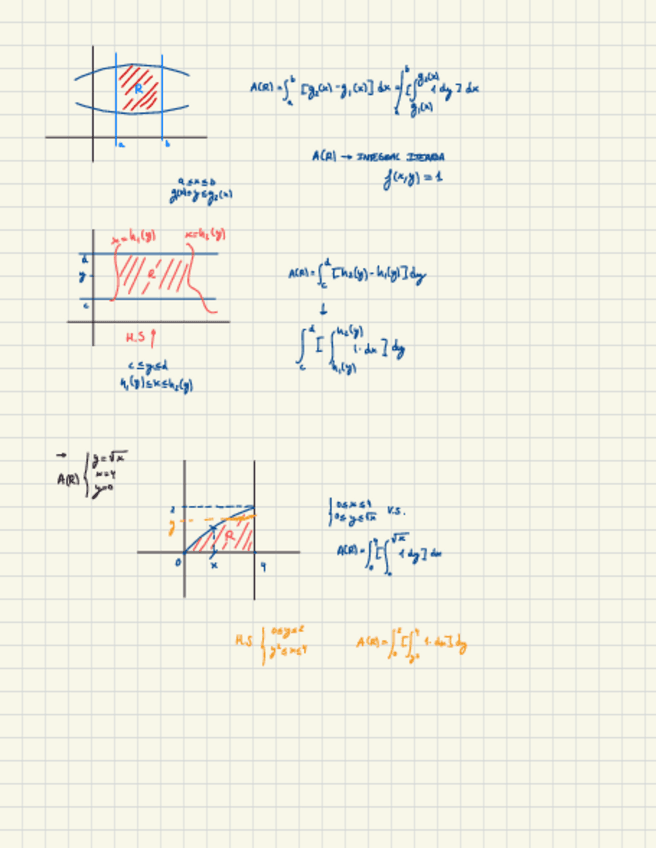 R
a b
A(R) = ∫_a^b [g₂(x) - g₁(x)] dx = ∫_a^b [∫_{g₁(x)}^{g₂(x)} 1 dy] dx
A(R) → INTEGRAL
f(x,y) = 1
a ≤ x ≤ b
g₁(x) ≤ y ≤ g₂(x)
x=h₁(y) x=h₂(y)
d
y
c
R
H.S ↑
c ≤ y ≤ d
h₁(y) ≤ x ≤ h₂(y)
A(R) = ∫_c^d [h₂(y) - h₁(y)] dy
↓
∫_c^d [∫_{h₁(y)}^{h₂(y)} 1 · dx] dy
→
A(R) { y = √x
x = 4
y = 0
2
y
R
0 x 4
{ 0 ≤ x ≤ 4
0 ≤ y ≤ √x V.S.
A(R) = ∫_0^4 [∫_0^{√x} 1 dy] dx
H.S { 0 ≤ y ≤ 2
y² ≤ x ≤ 4
A(R) = ∫_0^2 [∫_{y²}^4 1 · dx] dy